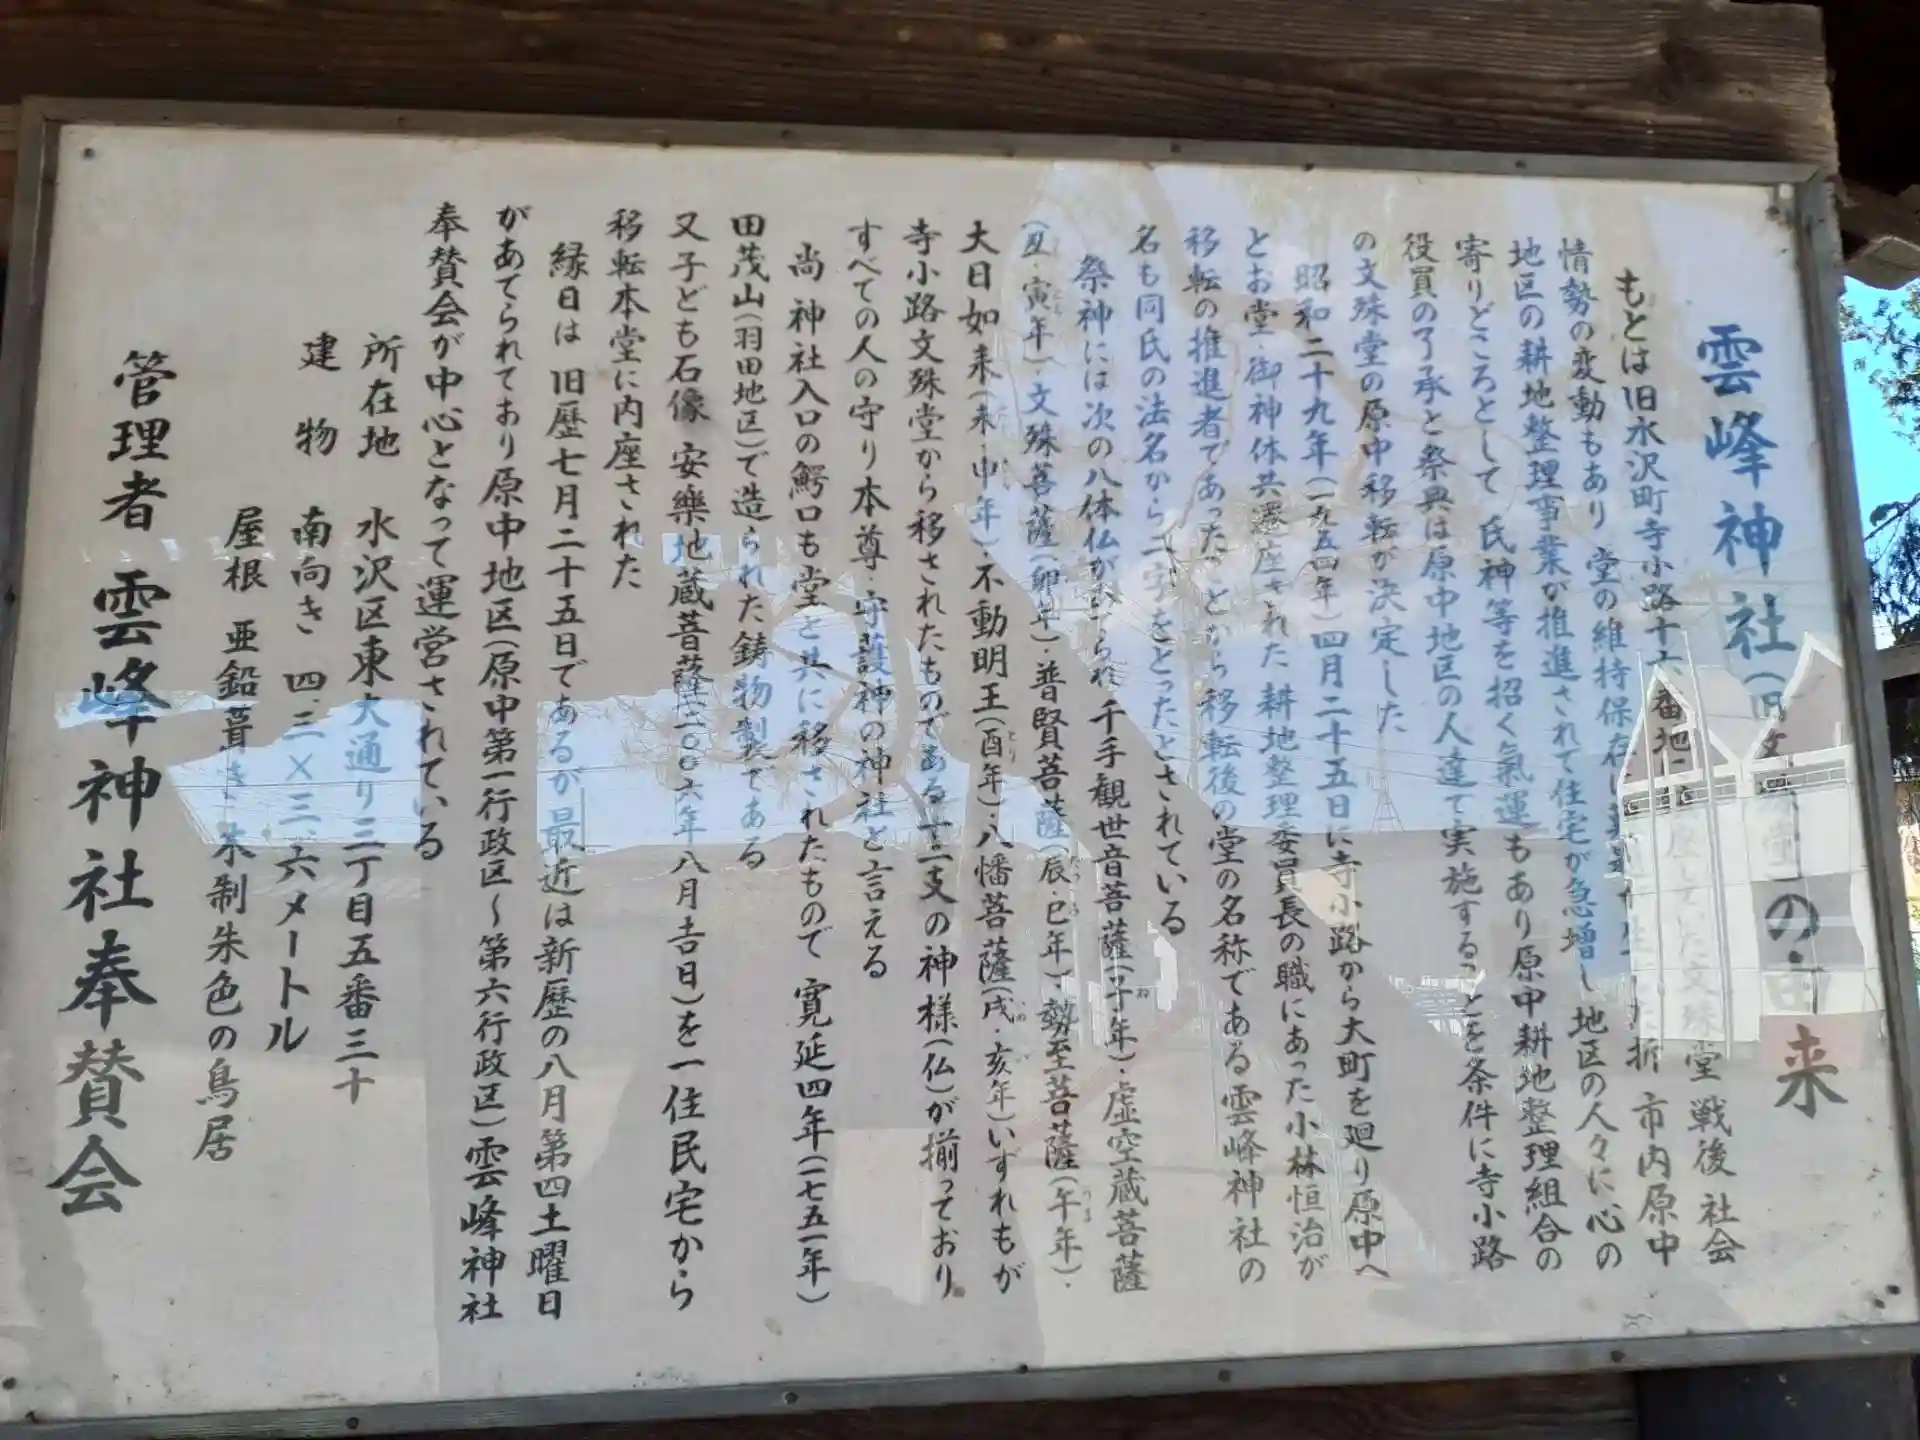 雲峰神社(旧文殊堂)の由来
もとは旧水沢町寺小路十六番地に 座していた文殊堂 戦後 社会
情勢の変動もあり 堂の維持保存に 折 市内原中
地区の耕地整理事業が推進されて住宅が急増し 地区の人々に心の
寄りどころとして 氏神等を招く氣運もあり原中耕地整理組合の
役員の了承と祭典は原中地区の人達で実施することを条件に寺小路
の文殊堂の原中移転が決定した
昭和二十九年(一九五四年)四月二十五日に寺小路から大町を廻り原中へ
とお堂・御神体共遷座された 耕地整理委員長の職にあった小林恒治が
移転の推進者であったことから移転後の堂の名称である雲峰神社の
名も同氏の法名から二字をとったとされている
祭神には次の八体仏が祭られ 千手観世音菩薩(子年)・虚空蔵菩薩
(丑・寅年)・文殊菩薩(卯年)・普賢菩薩(辰・巳年)・勢至菩薩(午年)・
大日如来(未・申年)・不動明王(酉年)・八幡菩薩(戌・亥年)いずれもが
寺小路文殊堂から移されたものである十二支の神様(仏)が揃っており
すべての人の守り本尊・守護神の神社と言える
尚 神社入口の鰐口も堂と共に移されたもので 寛延四年(一七五一年)
田茂山(羽田地区)で造られた鋳物製である
又子ども石像 安樂地蔵菩薩(二〇〇六年八月吉日)を一住民宅から
移転本堂に内座された
縁日は 旧歴七月二十五日であるが最近は新歴の八月第四土曜日
があてられており原中地区(原中第一行政区〜第六行政区)雲峰神社
奉賛会が中心となって運営されている
所在地 水沢区東大通り三丁目五番三十
建 物 南向き 四.三×三.六メートル
屋根 亜鉛葺き 木制朱色の鳥居
管理者 雲峰神社奉賛会